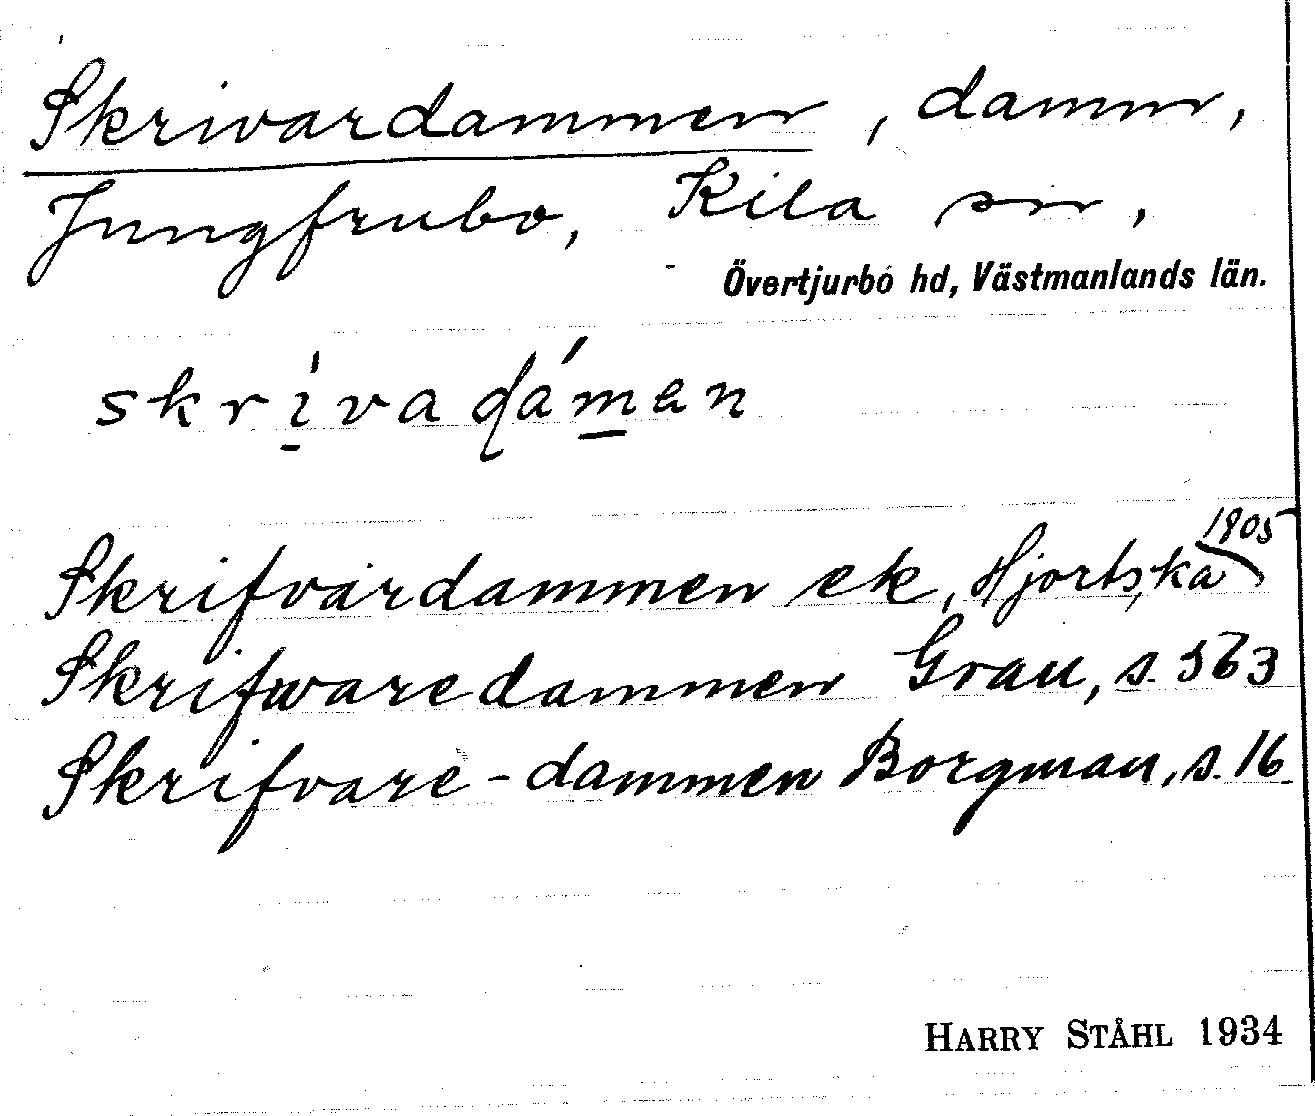 Skrivardammen, damm,
Jungfrubo, Kila sn,
Övertjurbo hd, Västmanlands län.
skri̱vadám̱en
Skrifvardammen ek, Hjortska 1905
Skrifwaredammen Grau, s. 563
Skrifvare-dammen Borgman, s. 16
HARRY STÅHL 1934